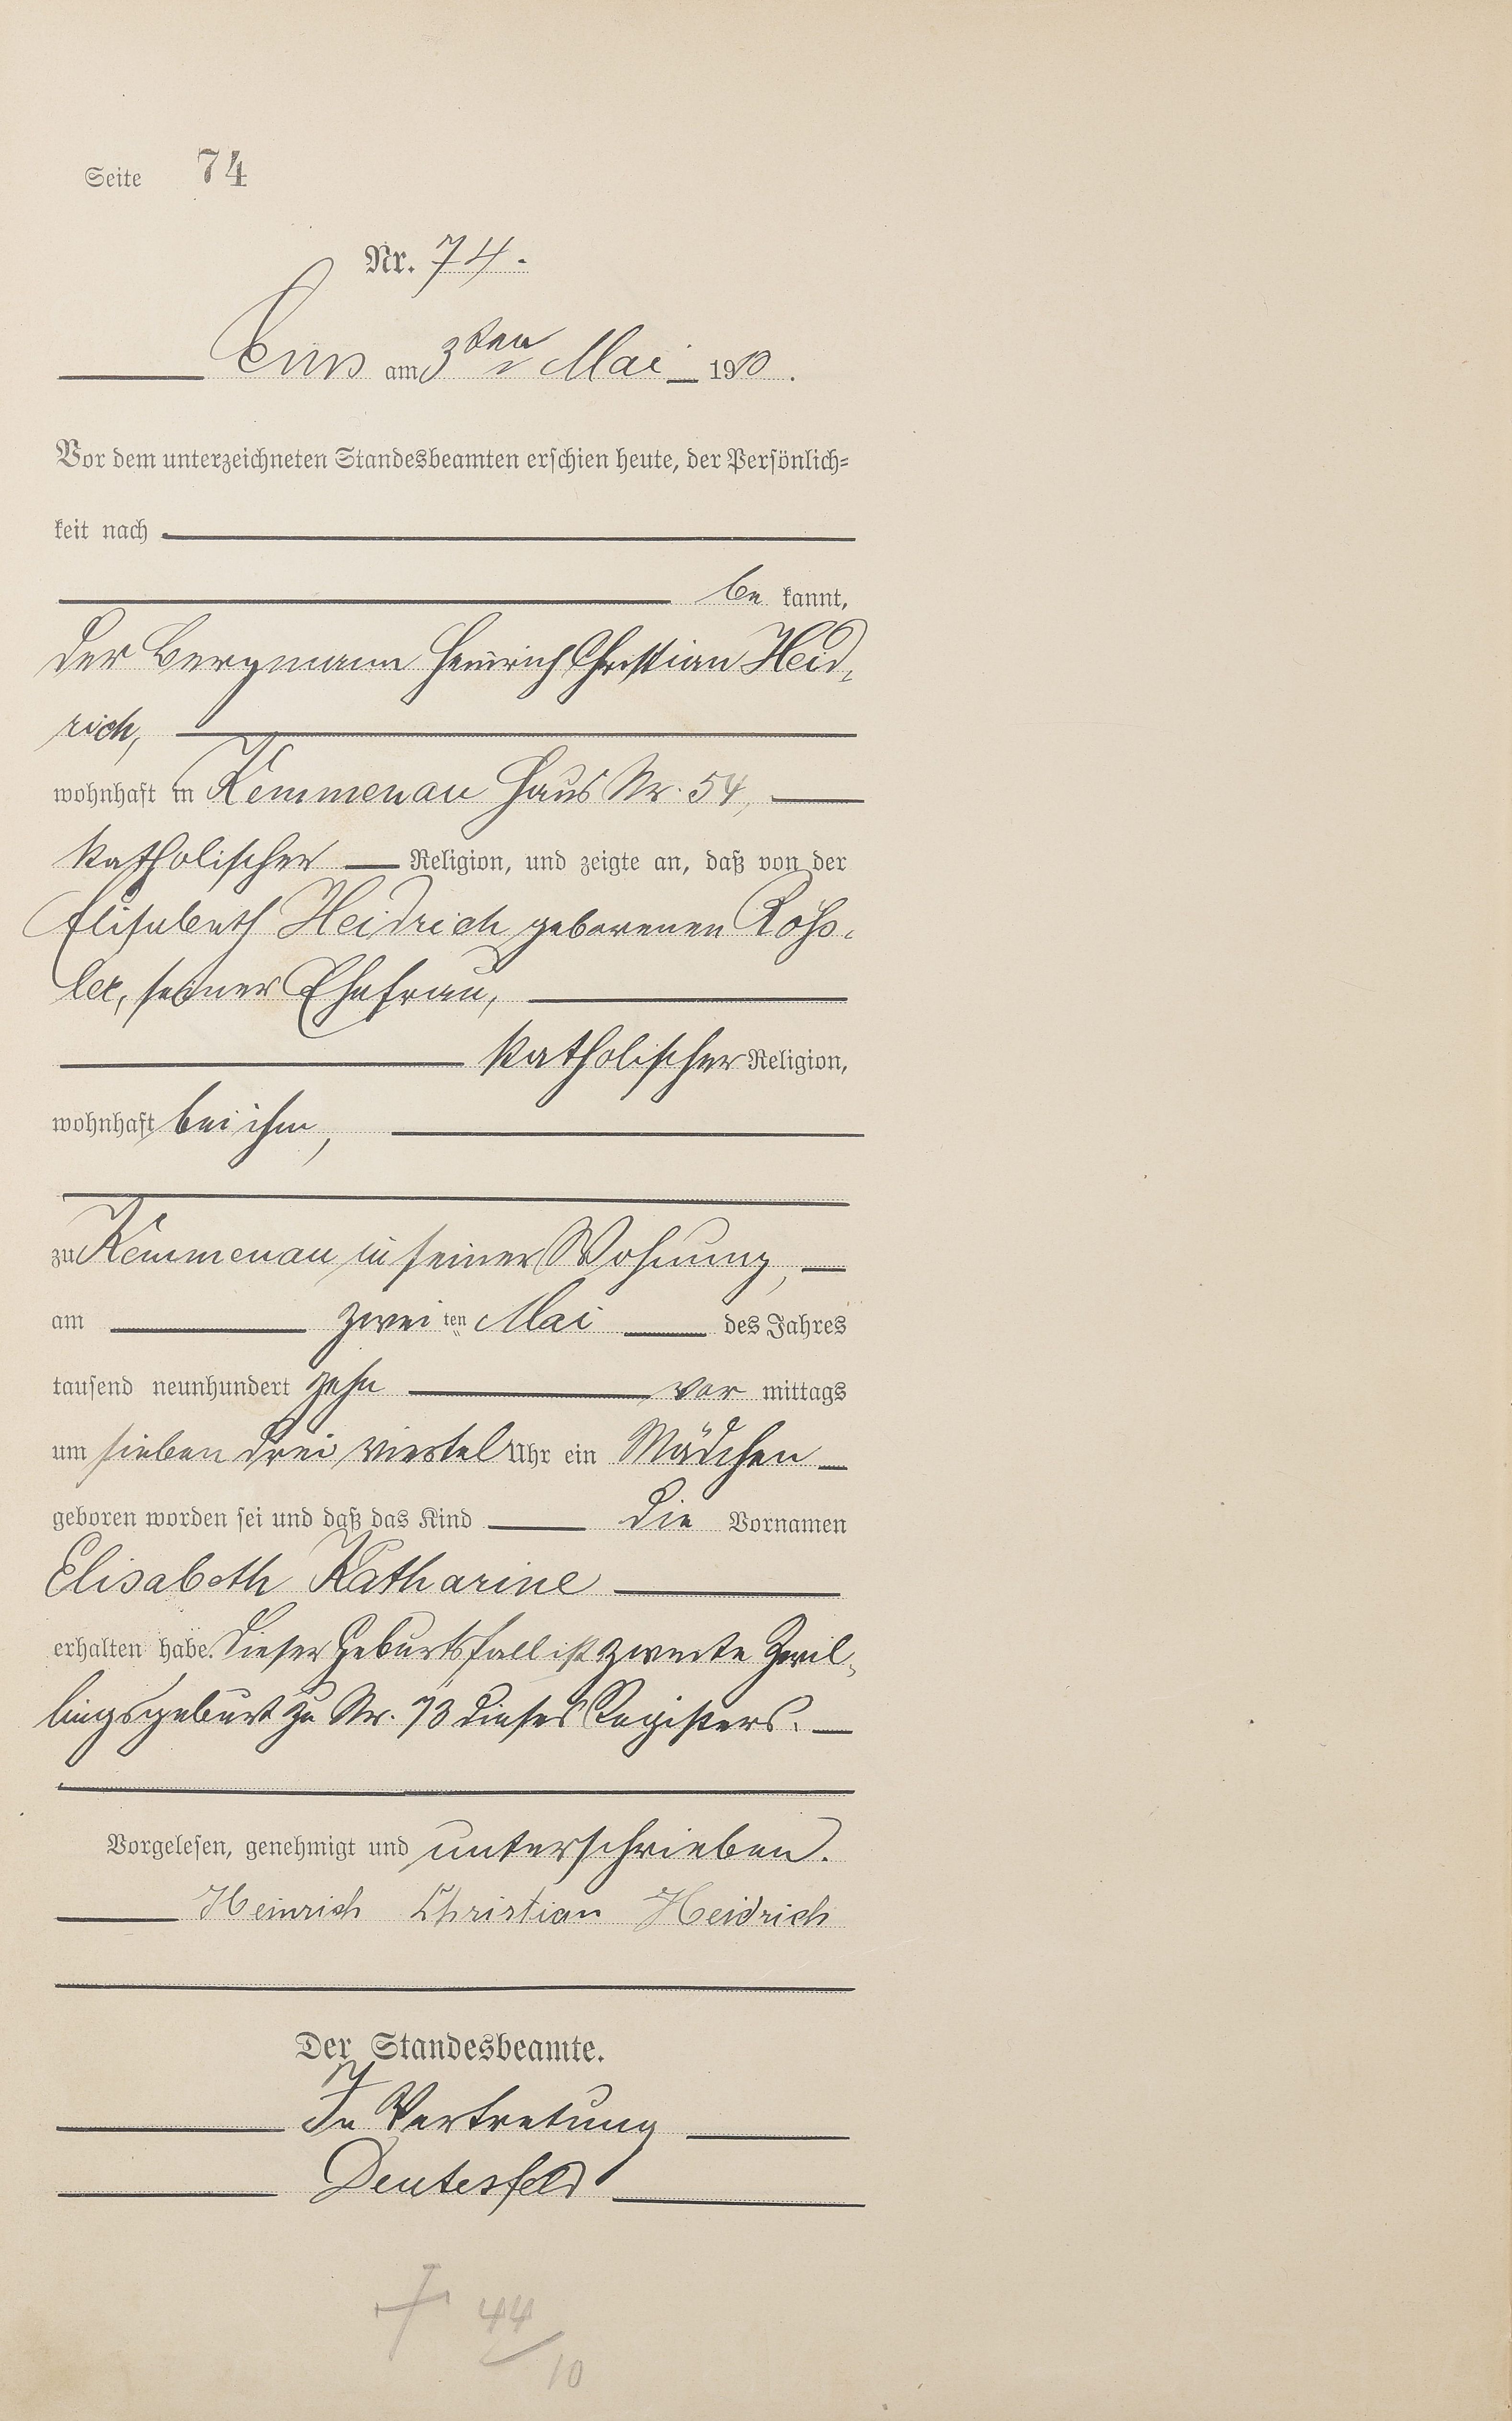 Seite 74
Nr. 74.
Ems am 3ten Mai 1910.
Vor dem unterzeichneten Standesbeamten erschien heute, der Persönlich=
keit nach
be kannt,
der Bergmann Heinrich Christian Heid-
rich,
wohnhaft in Kemmenau Haus Nr. 54,
katholischer Religion, und zeigte an, daß von der
Elisabeth Heidrich geborenen
seiner Ehefrau,
katholischer Religion,
wohnhaft bei ihm,
zu Kemmenau in seiner Wohnung,
am zwei ten Mai des Jahres
tausend neunhundert zehn vor mittags
um sieben drei viertel Uhr ein Mädchen
geboren worden sei und daß das Kind die Vornamen
Elisabeth Katharine
erhalten habe. Dieser Geburtsfall ist zweite Zwil-
lingsgeburt zu Nr. 73 dieses Registers.
Vorgelesen, genehmigt und unterschrieben.
Heinrich Christian Heidrich
Der Standesbeamte.
In Vertretung
Deutesfeld
† 44/10